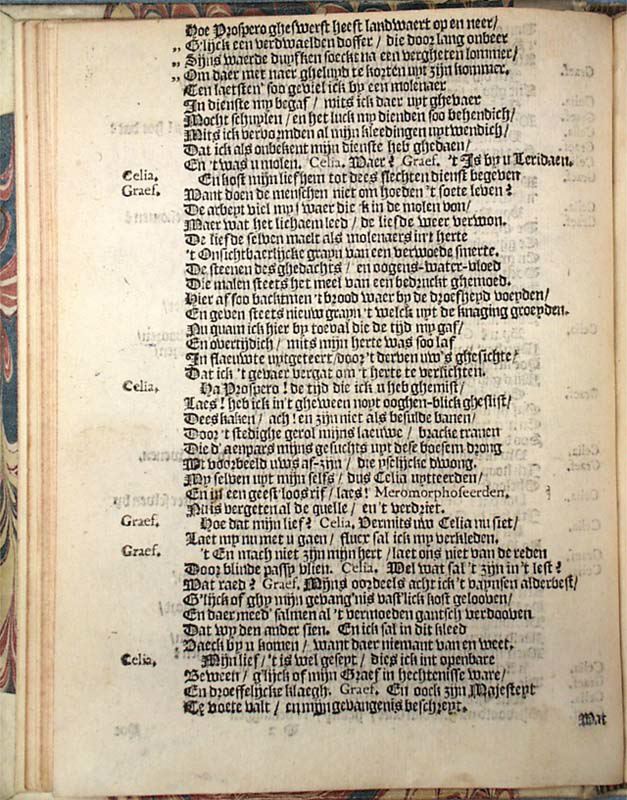 Hoe Prospero gheswerft heeft landwaert op en neer/
„ G'lijck een verdwaelden doffer/ die door lang onbeer
„ Sijns waerde duyfken soeckt na een vergheten lommer/
„ Om daer met naer gheluyd te korten uyt zijn kommer.
Een laetsten' soo geviel ick by een molenaer
In dienste my begaf/ mits ick daer uyt ghevaer
Mocht schuylen/ en het luck my dienden soo behendich/
Mits ick vervormden al mijn kleedingen uytwendich/
Dat ick als onbekent mijn dienste heb ghedaen/
En 't was u molen. Celia. Waer? Graef. 't Is by u Leridaen.
Celia. En kost mijn lief hem tot dees slechten dienst begeven
Graef. Want doen de menschen niet om hoeden 't soete leven?
De arbeyt viel my swaer die 'k in de molen von/
Maer wat het lichaem leed/ de liefde weer verwon.
De liefde selven maelt als molenaers in't herte
't Onsichtbaerlijcke grayn van een verwoede smerte.
De steenen des ghedachts/ en oogens-water-vloed
Die malen steets het meel van een bedruckt ghemoed.
Hier af soo backtmen 't brood waer by de droefheyd voeyden/
En geven steets nieuw grayn 't welck uyt de knaging groeyden.
Nu quam ick hier by toeval die de tijd my gaf/
En overtijdich/ mits mijn herte was soo laf
In flaeuwte uytgeteert/ door 't derven uw's ghesichte/
Dat ick 't gevaer vergat om 't herte te verlichten.
Celia. Ha Prospero! de tijd die ick u heb ghemist/
Laes! heb ick in't gheween noyt ooghen-blick gheslist/
Dees kaken/ ach! en zijn niet als besulde banen/
Door 't stedighe gerol mijns laeuwe/ bracke tranen
Die d'aenpars mijns gesuchts uyt dese boesem drong
Wt voorbeeld uws af-zijn/ die yselijcke dwong.
My selven uyt mijn selfs/ dus Celia uytteerden/
En in een geest'loos rif/ laes! Meromorphoseerden.
Nu is vergeten al de quelle/ en 't verdriet.
Graef. Hoe dat mijn lief? Celia. Vermits uw Celia nu siet/
Laet my nu met u gaen/ flucx sal ick my verkleden.
Graef. 't En mach niet zijn mijn hert/ laet ons niet van de reden
Door blinde passy vlien. Celia. Wel wat sal 't zijn in't lest?
Wat raed? Graef. Mijns oordeels acht ick 't vaynsen alderbest/
G'lijck of ghy mijn gevang'nis vast'lick kost gelooven/
En daer meed' salmen al 't vermoeden gantsch verdooven
Dat wy den ander sien. En ick sal in dit kleed
Vaeck by u komen/ want daer niemant van en weet.
Celia. Mijn lief/ 't is wel geseyt/ dies ick int openbare
Beween/ g'lijck of mijn Graef in hechtenisse ware/
En droeffelijcke klaegh. Graef. En oock zijn Majesteyt
Te voete valt/ en mijn gevangenis beschreyt.
Wat